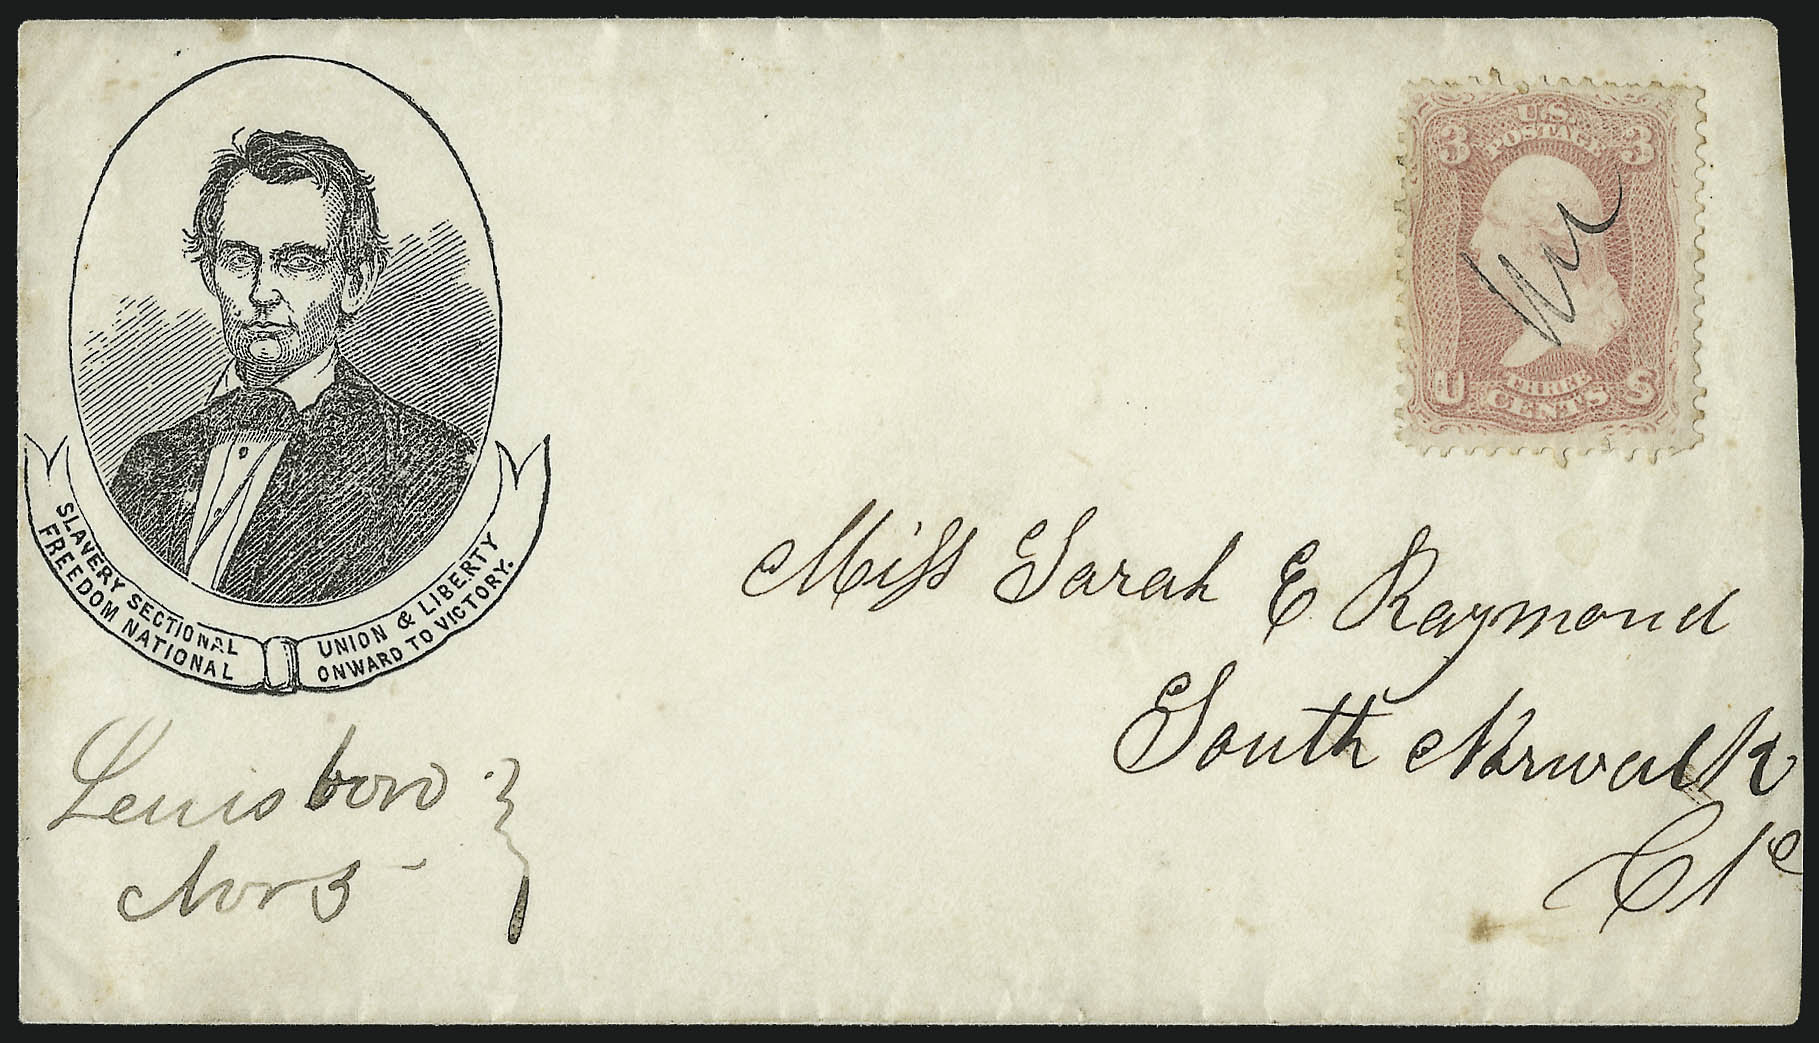 SLAVERY SECTIONAL
FREEDOM NATIONAL
UNION & LIBERTY
ONWARD TO VICTORY.
U.S.
POSTAGE
3 3
U S
THREE
CENTS
Miss Sarah E Raymond
South Norwalk
Ct
Lewisboro
Nov 3